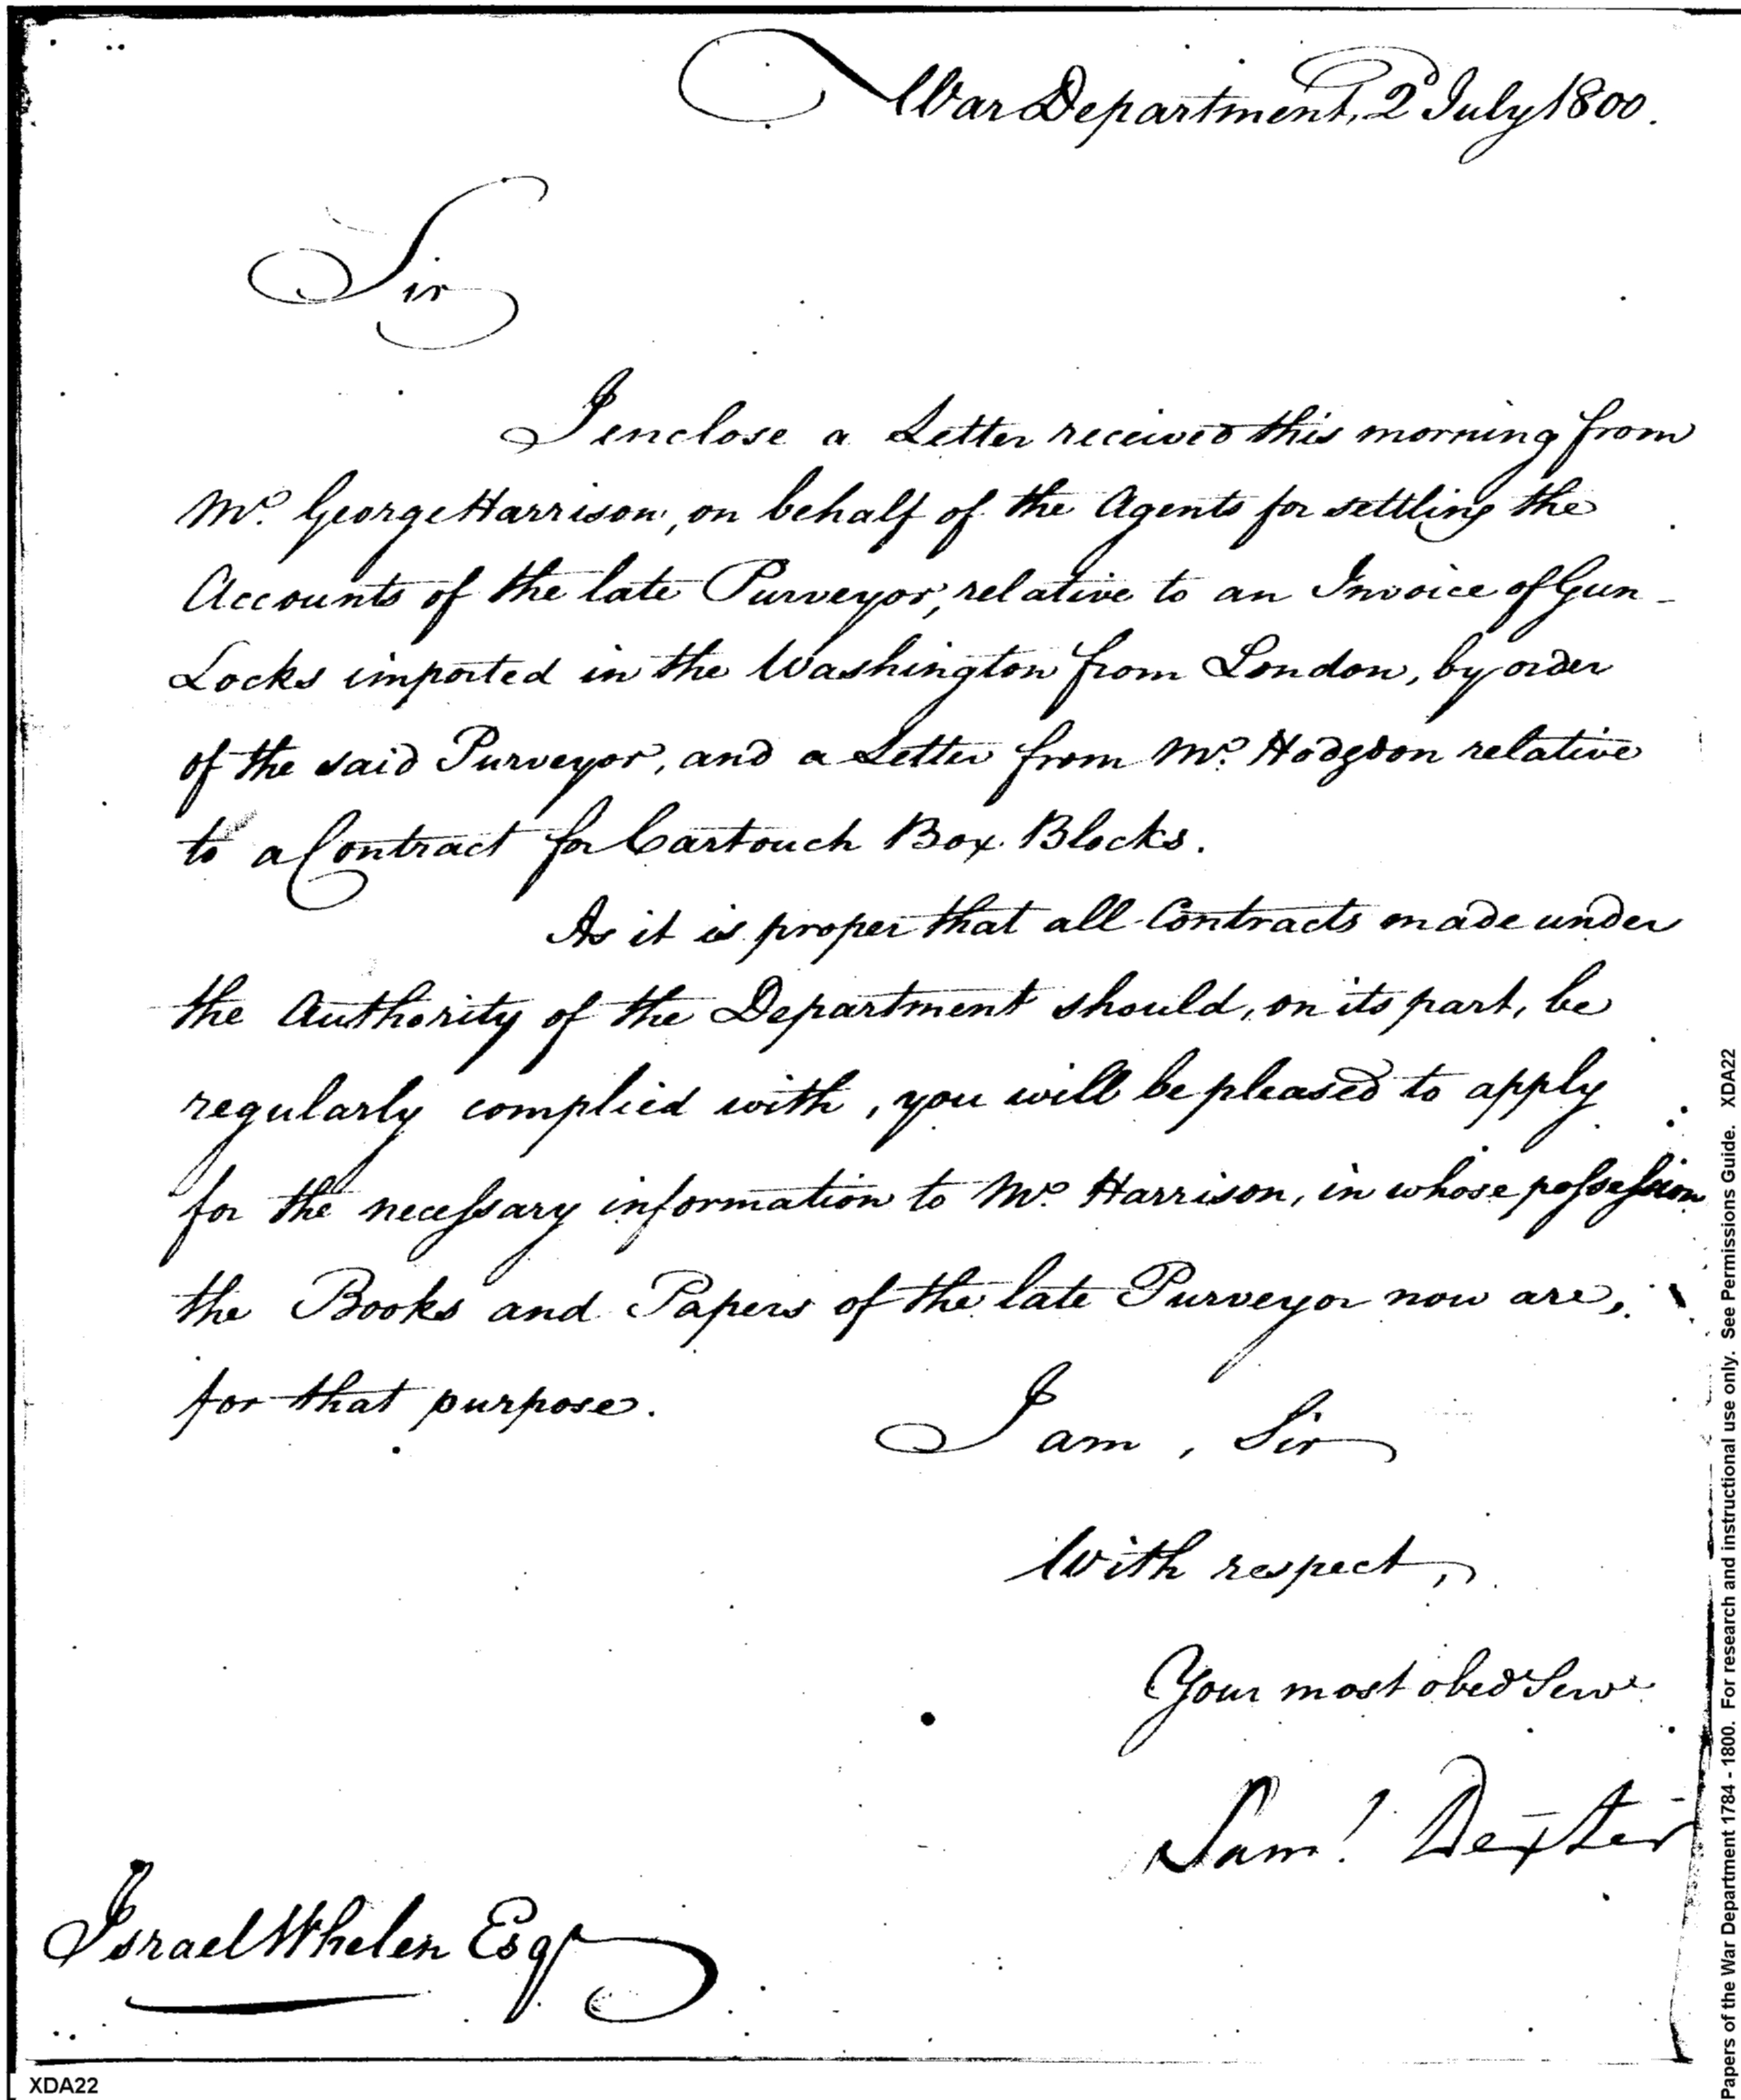 War Department, 2d July 1800.
Sir
I enclose a Letter received this morning from
Mr. George Harrison, on behalf of the Agents for settling the
Accounts of the late Purveyor, relative to an Invoice of Gun-
Locks imported in the Washington from London, by order
of the said Purveyor, and a Letter from Mr. Hodgdon relative
to a Contract for Cartouch Box Blocks.
As it is proper that all Contracts made under
the Authority of the Department should, on its part, be
regularly complied with, you will be pleased to apply
for the necessary information to Mr. Harrison, in whose possession
the Books and Papers of the late Purveyor now are,
for that purpose.
I am, Sir
With respect,
Your most obed Servt
Saml. Dexter
Israel Whelen Esqr
XDA22
Papers of the War Department 1784 - 1800. For research and instructional use only. See Permissions Guide. XDA22